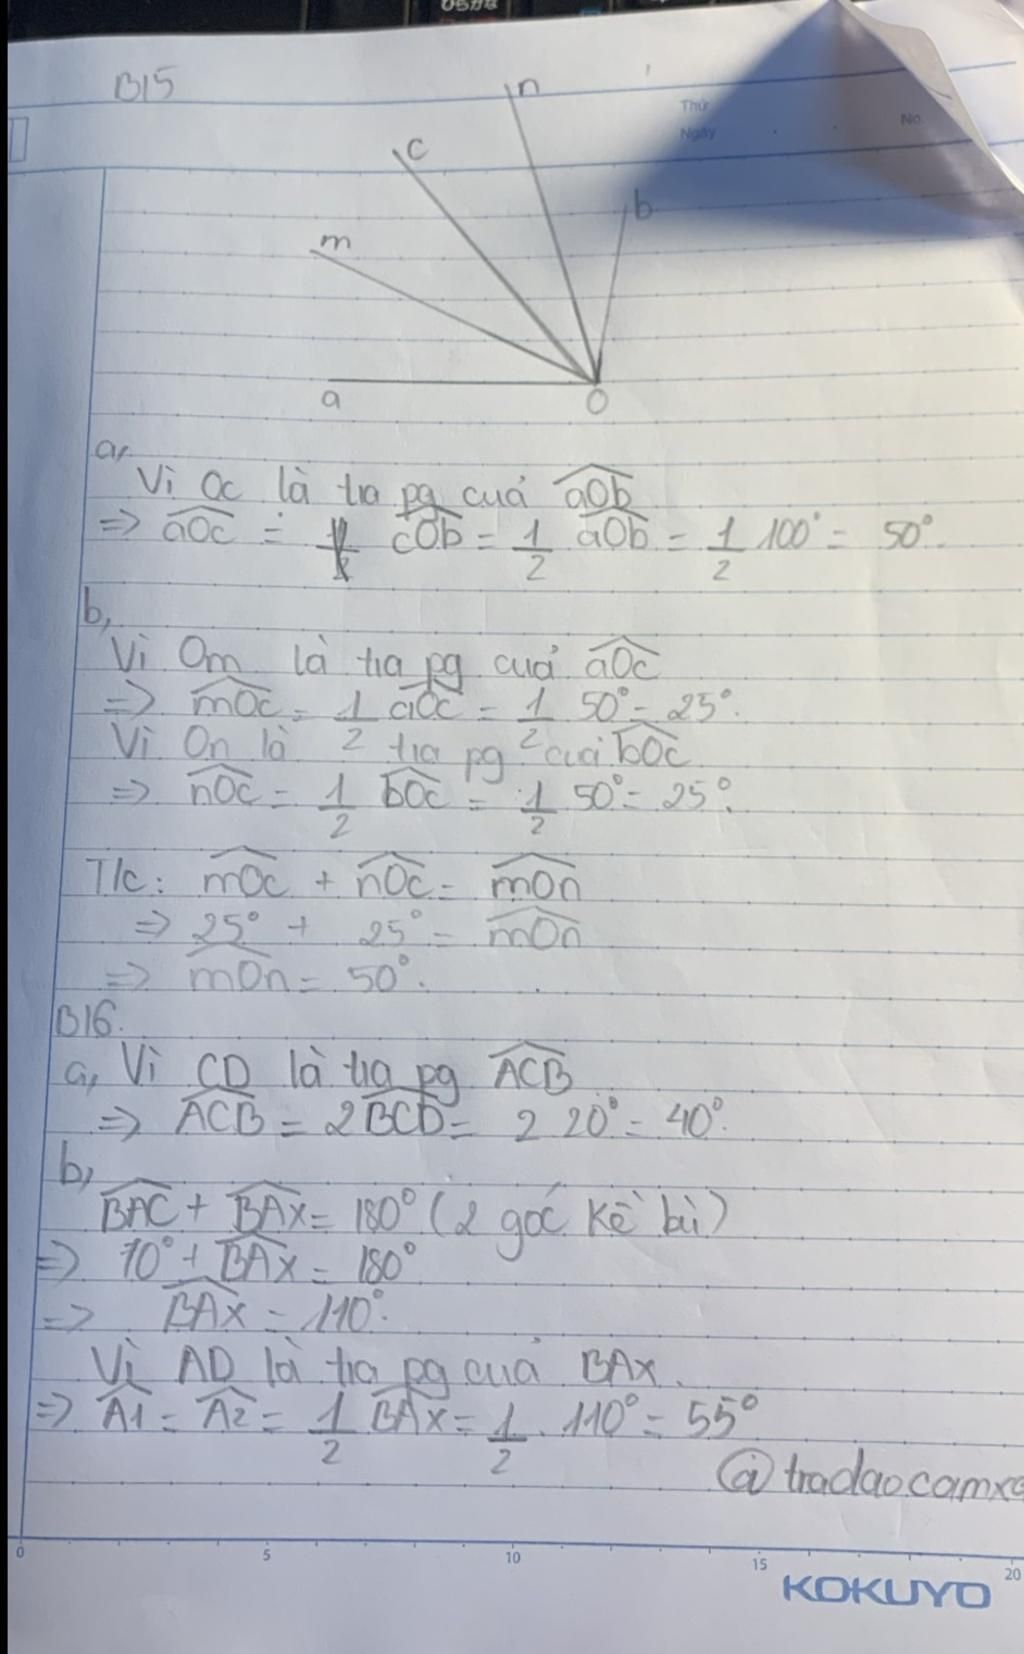 ひらがな
B15
Thứ
Ngày
No.
n
c
b
m
a
O
a,
Vì Oc là tia pg của aOb
=> aOc = cOb = 1/2 aOb = 1/2 100° = 50°.
b,
Vì Om là tia pg của aOc
=> mOc = 1/2 aOc = 1/2 50° = 25°.
Vì On là tia pg của bOc
=> nOc = 1/2 bOc = 1/2 50° = 25°.
T/c: mOc + nOc = mOn
=> 25° + 25° = mOn
=> mOn = 50°.
B16.
a, Vì CD là tia pg ACB
=> ACB = 2BCD = 2 20° = 40°.
b,
BAC + BAx = 180° (2 góc kề bù)
=> 70° + BAx = 180°
=> BAx = 110°.
Vì AD là tia pg của BAx.
=> A1 = A2 = 1/2 BAx = 1/2 . 110° = 55°
@tradaocamxa
0 5 10 15 20
KOKUYO